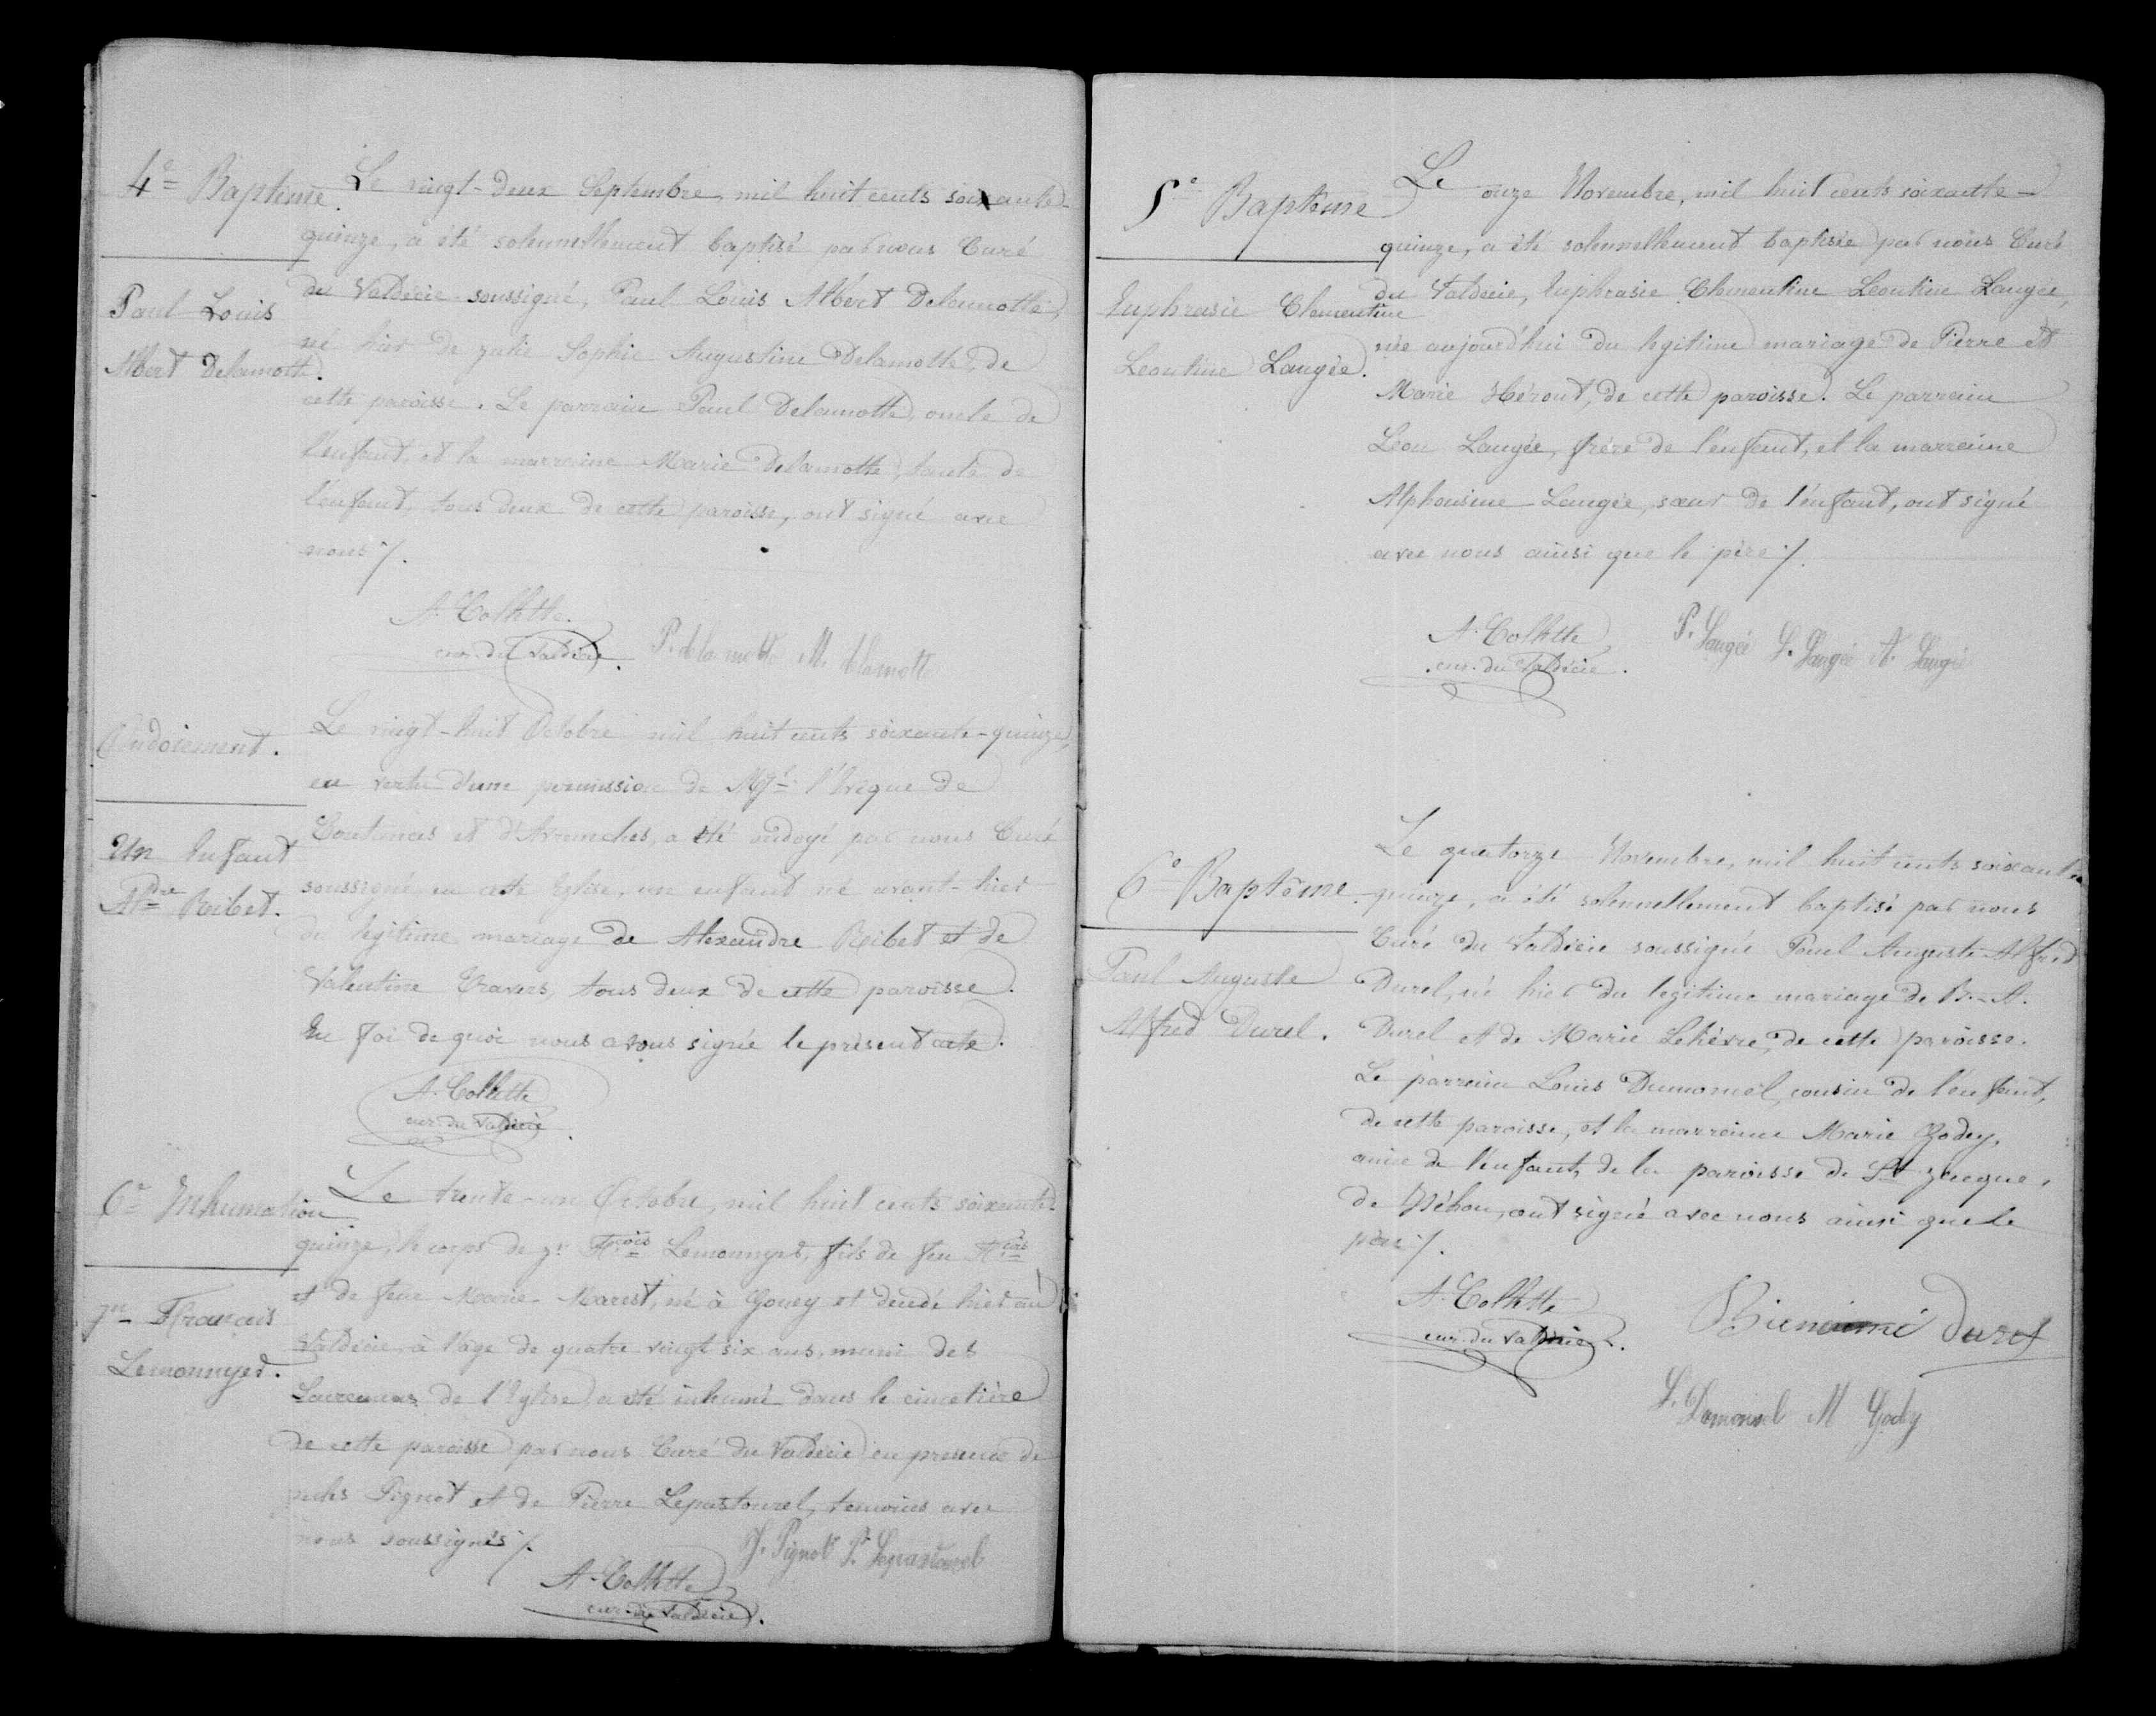 4e Baptême.
Paul Louis
Albert Delamotte.
Le vingt-deux Septembre, mil huit cents soixante-
quinze, a été solennellement baptisé par nous Curé
du Valdécie soussigné, Paul Louis Albert Delamotte,
né hier de Julie Sophie Augustine Delamotte, de
cette paroisse. Le parrain Paul Delamotte, oncle de
l'enfant, et la marraine Marie Delamotte, tante de
l'enfant, tous deux de cette paroisse, ont signé avec
nous ./.
A. Collette
cur. du Valdécie. P. delamotte M. delamotte
Ondoiement.
Un Enfant
Aldre Reibet.
Le vingt-huit Octobre mil huit cents soixante-quinze,
en vertu d'une permission de Mgr l'Evêque de
Coutances et d'Avranches, a été ondoyé par nous Curé
soussigné en cette Eglise, un enfant né avant-hier
du legitime mariage de Alexandre Reibet et de
Valentine Travers, tous deux de cette paroisse.
En foi de quoi nous avons signée le présent acte.
A. Collette
cur. du Valdécie.
6e Inhumation
Jn François
Lemonnyer.
Le trente-un Octobre, mil huit cents soixante-
quinze, le corps de Jn Fçois Lemonnyer, fils de feu Fçois
et de feue Marie Marest, né à Gouey et décédé hier au
Valdécie, à l'âge de quatre vingt six ans, muni des
Sacremens de l'Eglise, a été inhumé dans le cimetière
de cette paroisse par nous Curé du Valdécie en presence de
Jules Pignot et de Pierre Lepastourel, temoins avec
nous soussignés ./.
J. Pignot P. Lepastourel
A. Collette
cur. du Valdécie.
5e Baptême
Euphrasie Clementine
Leontine Langée.
Le onze Novembre, mil huit cents soixante-
quinze, a été solennellement baptisée par nous Curé
du Valdécie, Euphrasie Clementine Leontine Langée,
née aujourd'hui du legitime mariage de Pierre et
Marie Hérout, de cette paroisse. Le parrain
Leon Langée, frère de l'enfant, et la marraine
Alphonsine Langée, sœur de l'enfant, ont signé
avec nous ainsi que le père ./.
A. Collette P. Langée L. Langée A. Langée
cur. du Valdécie.
6e Baptême.
Paul Auguste
Alfred Durel.
Le quatorze Novembre, mil huit cents soixante
quinze, a été solennellement baptisé par nous
Curé du Valdécie soussigné Paul Auguste Alfred
Durel, né hier du legitime mariage de B.-A.
Durel et de Marie Lelièvre, de cette paroisse.
Le parrain Louis Dumoncel, cousin de l'enfant,
de cette paroisse, et la marraine Marie Godey,
amie de l'enfant, de la paroisse de St Jacque,
de Néhou, ont signé avec nous ainsi que le
père ./.
A. Collette
cur. du Valdécie. Bienaimé Durel
L. Dumoncel M Godey